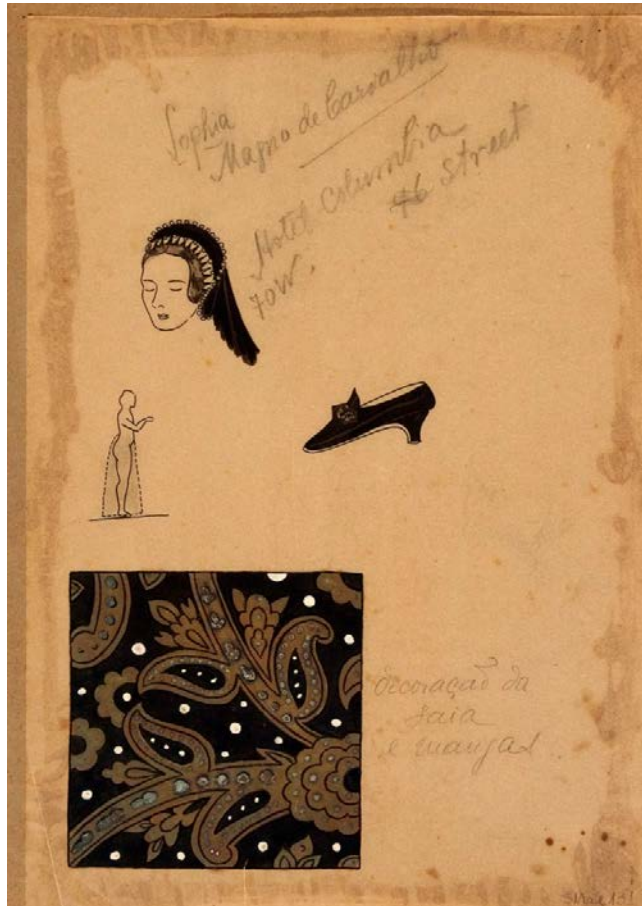 Sophia
Magno de Carvalho
Hotel Columbia
70 W. 46 Street
decoração da
saia
e mangas